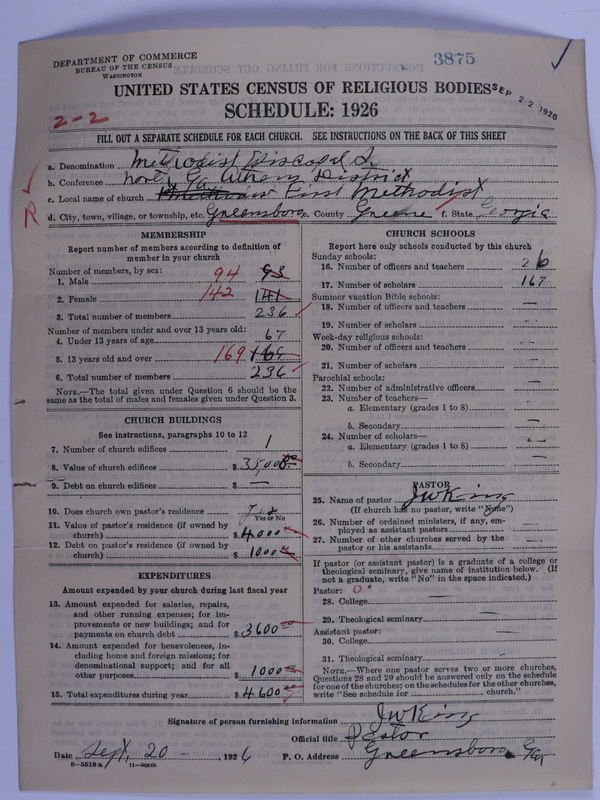 DEPARTMENT OF COMMERCE
BUREAU OF THE CENSUS
WASHINGTON
3875
UNITED STATES CENSUS OF RELIGIOUS BODIES
SEP 22 1926
SCHEDULE: 1926
2-2
FILL OUT A SEPARATE SCHEDULE FOR EACH CHURCH. SEE INSTRUCTIONS ON THE BACK OF THIS SHEET
a. Denomination Methodist Episcopal S.
b. Conference North Ga Athens District
c. Local name of church First Methodist
d. City, town, village, or township, etc. Greensboro e. County Greene f. State Georgia
MEMBERSHIP
Report number of members according to definition of
member in your church
Number of members, by sex:
1. Male 94
2. Female 142 141
3. Total number of members 236
Number of members under and over 13 years old:
4. Under 13 years of age 67
5. 13 years old and over 169 169
6. Total number of members 236
NOTE.—The total given under Question 6 should be the
same as the total of males and females given under Question 3.
CHURCH BUILDINGS
See instructions, paragraphs 10 to 12
7. Number of church edifices 1
8. Value of church edifices $ 35,000 00
9. Debt on church edifices $ —
10. Does church own pastor's residence Yes
Yes or No
11. Value of pastor's residence (if owned by
church) $ 4,000 00
12. Debt on pastor's residence (if owned by
church) $ 1000 00
EXPENDITURES
Amount expended by your church during last fiscal year
13. Amount expended for salaries, repairs,
and other running expenses; for im-
provements or new buildings; and for
payments on church debt $ 3,600 00
14. Amount expended for benevolences, in-
cluding home and foreign missions; for
denominational support; and for all
other purposes $ 1000 00
15. Total expenditures during year $ 4,600 00
CHURCH SCHOOLS
Report here only schools conducted by this church
Sunday schools:
16. Number of officers and teachers 26
17. Number of scholars 167
Summer vacation Bible schools:
18. Number of officers and teachers —
19. Number of scholars —
Week-day religious schools:
20. Number of officers and teachers —
21. Number of scholars —
Parochial schools:
22. Number of administrative officers —
23. Number of teachers—
a. Elementary (grades 1 to 8) —
b. Secondary —
24. Number of scholars—
a. Elementary (grades 1 to 8) —
b. Secondary —
PASTOR
25. Name of pastor J W King
(If church has no pastor, write "None")
26. Number of ordained ministers, if any, em-
ployed as assistant pastors —
27. Number of other churches served by the
pastor or his assistants —
If pastor (or assistant pastor) is a graduate of a college or
theological seminary, give name of institution below. (If
not a graduate, write "No" in the space indicated.)
Pastor: 0
28. College —
29. Theological seminary —
Assistant pastor:
30. College —
31. Theological seminary —
NOTE.—Where one pastor serves two or more churches,
Questions 28 and 29 should be answered only on the schedule
for one of the churches; on the schedules for the other churches,
write "See schedule for ........ church."
Signature of person furnishing information J W King
Official title Pastor
Date Sept 20 -, 1926 P. O. Address Greensboro Ga
8—5518 a 11—9024b